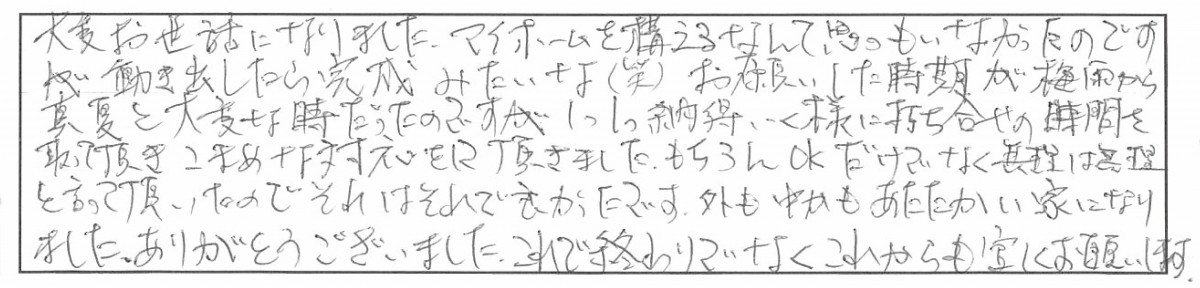 大変お世話になりました。マイホームを構えるなんて思ってもいなかったのです
が動き出したら完成みたいな(笑)お願いした時期が梅雨から
真夏と大変な時だったのですがしっしっ納得いく様に打ち合せの時間を
取って頂きこまめな対応をして頂きました。もちろんOKだけでなく無理は無理
と言って頂いたのでそれはそれで良かったです。外も中からもあたたかい家になり
ました。ありがとうございました。これで終わりでなくこれからも宜しくお願いします。